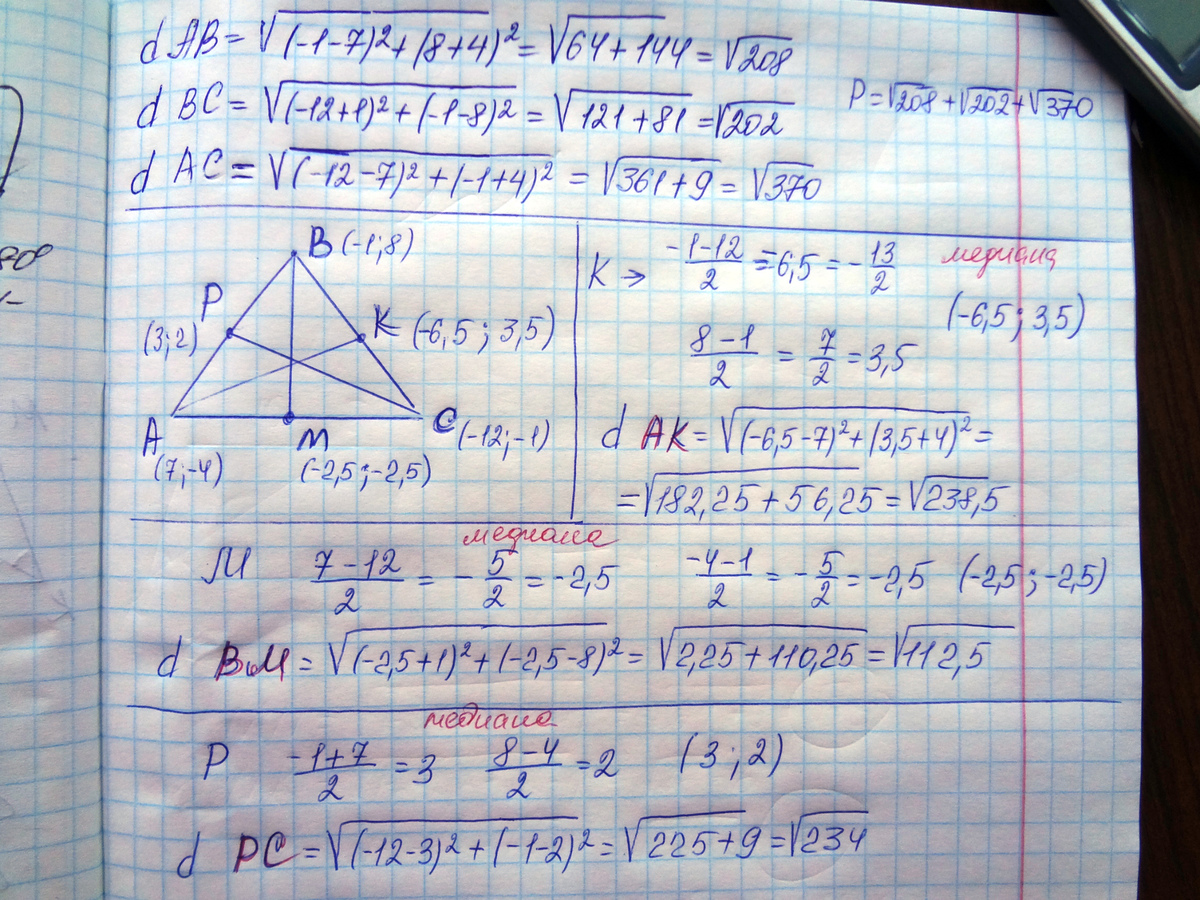 d AB = √((-1-7)²+(8+4)²) = √(64+144) = √208
d BC = √((-12+1)²+(-1-8)²) = √(121+81) = √202
P = √208 + √202 + √370
d AC = √((-12-7)²+(-1+4)²) = √(361+9) = √370
B (-1;8)
P
(3;2)
K (-6,5; 3,5)
A
(7;-4)
M
(-2,5;-2,5)
C (-12;-1)
K → (-1-12)/2 = -6,5 = -13/2
медиана
(-6,5; 3,5)
(8-1)/2 = 7/2 = 3,5
d AK = √((-6,5-7)²+(3,5+4)²) =
= √(182,25+56,25) = √238,5
медиана
M (7-12)/2 = -5/2 = -2,5 (-4-1)/2 = -5/2 = -2,5 (-2,5; -2,5)
d BM = √((-2,5+1)²+(-2,5-8)²) = √(2,25+110,25) = √112,5
медиана
P (-1+7)/2 = 3 (8-4)/2 = 2 (3;2)
d PC = √((-12-3)²+(-1-2)²) = √(225+9) = √234